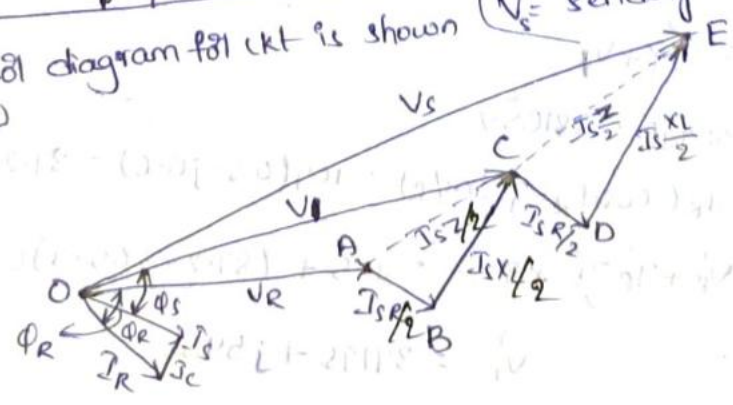 Vs =
diagram for ckt is shown
E
Vs
Is Z/2
Is XL/2
C
V1
Is Z/2
Is R/2
D
A
Is XL/2
O
VR
Is R/2
B
φs
φR
φR
Is
IR
Ic